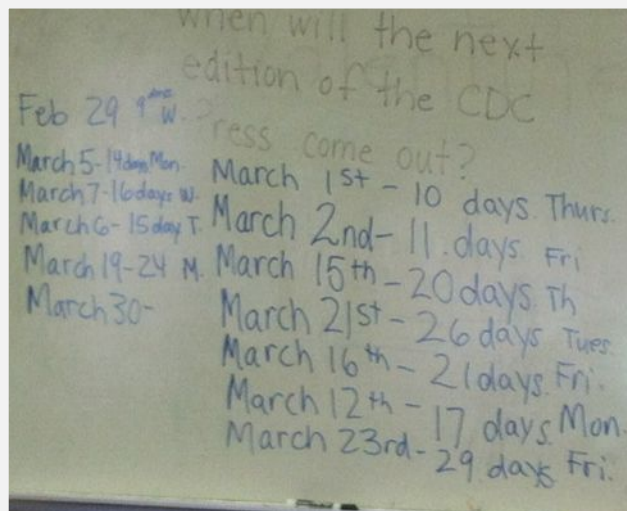 when will the next
edition of the CDC
Press come out?
Feb 29 9 days W.
March 5-14 days Mon.
March 7-16 days W.
March 6-15 day T.
March 19-24 M.
March 30-
March 1st - 10 days Thurs.
March 2nd - 11 days Fri
March 15th - 20 days Th
March 21st - 26 days Tues
March 16th - 21 days Fri.
March 12th - 17 days Mon.
March 23rd - 29 days Fri.